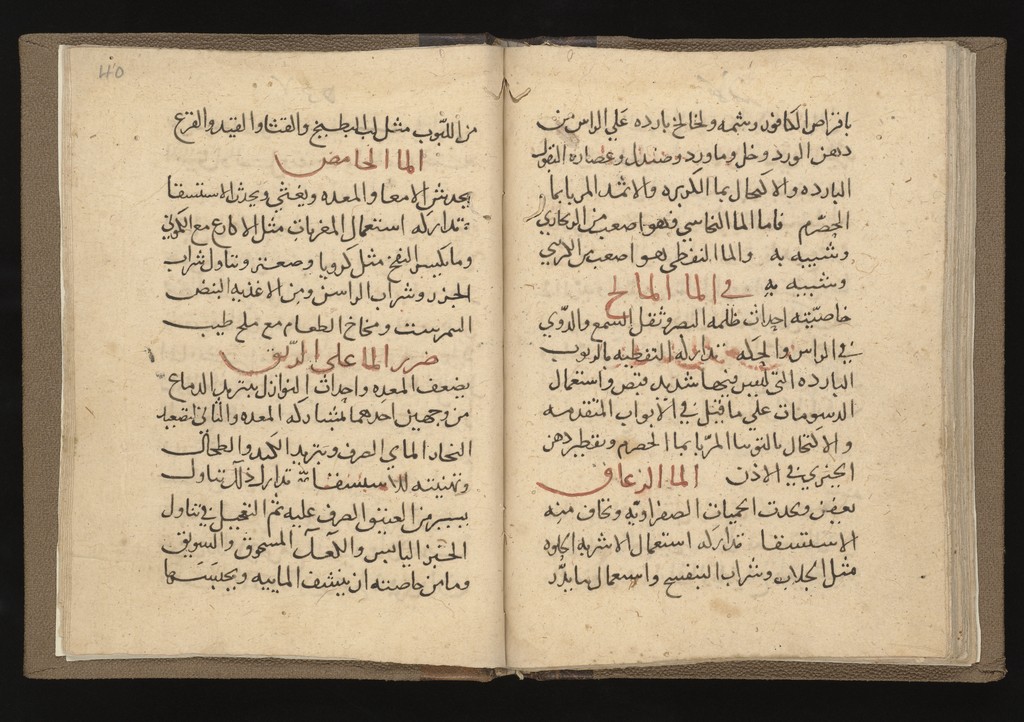 باقراص الكافور وشمه ولخالخ بارده على الراس من
دهن الورد وخل وماورد وصندل وعصاره البقول
البارده والاكتحال بما الكزبره والاثمد المربا بما
الحصرم فاما الما النحاسي فهو اصعب من الزنجاري
وشبيه به والما النفطي هو اصعب من الكبريتي
وشبيه به في الما المالح
خاصيته احداث ظلمه البصر وثقل السمع والدوي
في الراس والحكه تداركه التفطيه بالربوب
البارده التي ليس فيها شديد قبض واستعمال
الدسومات على ما قيل في الابواب المتقدمه
والاكتحال بالتوتيا المربا بما الحصرم وتقطير دهن
الخيري في الاذن الما الزعاق
يعفن ويحدث الحميات الصفراويه ويخاف منه
الاستسقا تداركه استعمال الاشربه الحلوه
مثل الجلاب وشراب البنفسج واستعمال ما يدر
40
من اللبوب مثل لب البطيخ والقثا والقيد والقرع
الما الحامض
يحدث الامعا والمعده ويغثي ويحدث الاستسقا
تداركه استعمال المغريات مثل الاكارع مع الكموني
وما يكسر النفخ مثل كرويا وصعتر وتناول شراب
الجزر وشراب الراسن ومن الاغذيه البيض
النيمرشت ومخاخ الطعام مع ملح طيب
ضرر الما على الريق
يضعف المعده واحداث النوازل بتبريد الدماغ
من وجهين احدهما لمشاركه المعده والثاني لتصعيد
البخار الماي الصرف وتبريد الكبد والطحال
وتهيئته للاستسقا تدارك ذلك تناول
يسير من العتيق الصرف عليه ثم التعجيل في تناول
الخبز اليابس والكعك المسحوق والسويق
وما من خاصته ان ينشف الماييه ويحبسها